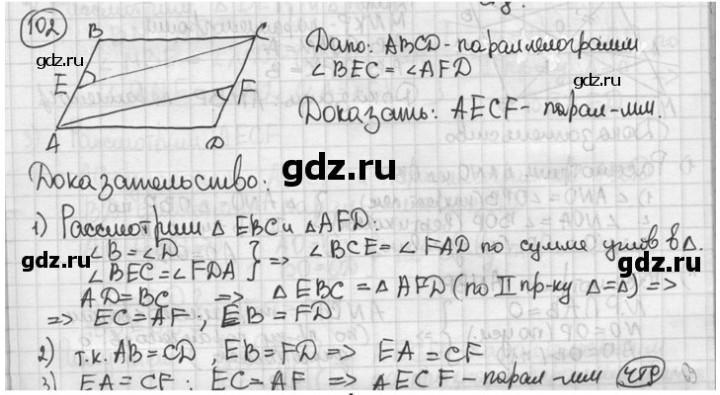 102
B C
gdz.ru
E F
A D
Дано: ABCD - параллелограмм
∠BEC = ∠AFD
gdz.ru
Доказать: AECF - парал-мм.
gdz.ru
Доказательство:
1) Рассмотрим △ EBC и △AFD:
∠B = ∠D
∠BEC = ∠FDA } => ∠BCE = ∠FAD по сумме углов в △.
gdz.ru
gdz.ru
AD = BC => △ EBC = △ AFD (по II пр-ку △=△) =>
=> EC = AF ; EB = FD
gdz.ru
2) т.к. AB = CD, EB = FD => EA = CF
3) EA = CF ; EC = AF => AECF - парал-мм чтд